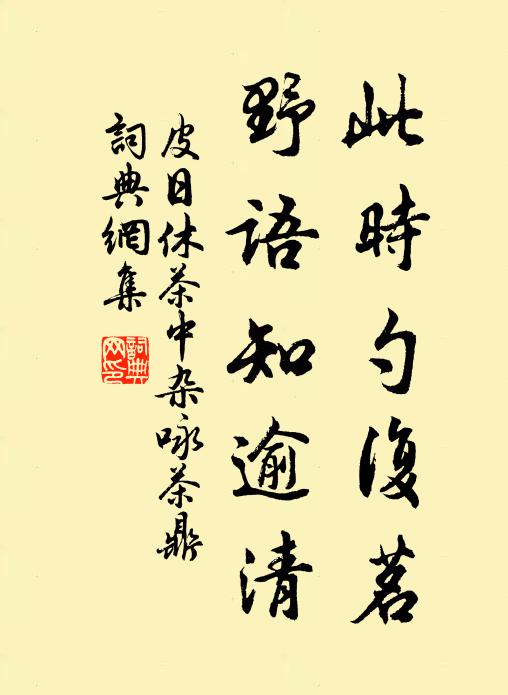 此時勺復茗
野語知逾清
皮日休茶中杂咏茶鼎
詞典網集
詞典网印